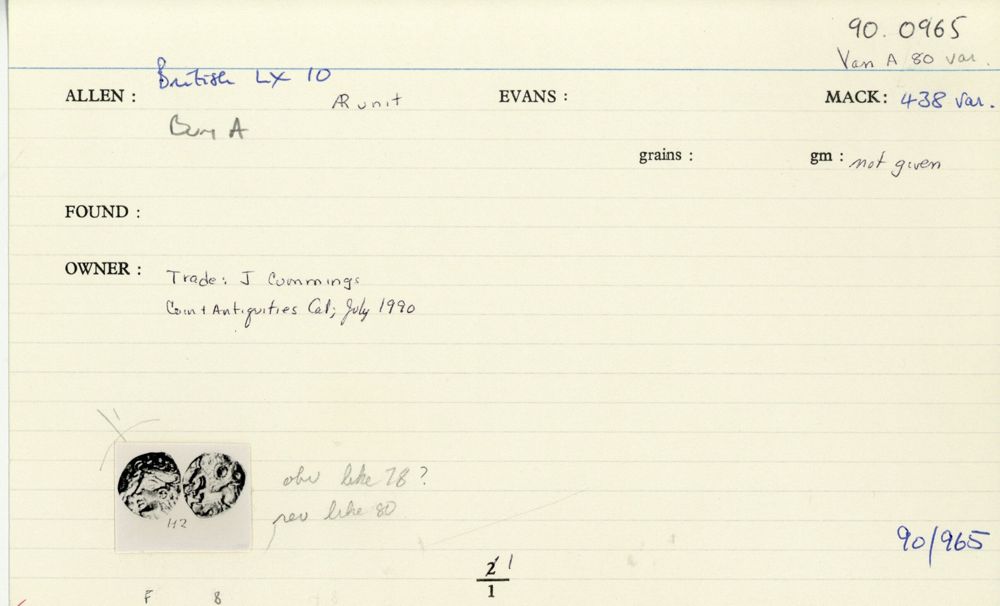 90. 0965
Van A 80 var.
British LX 10
ALLEN :
ÆR unit
EVANS :
MACK: 438 var.
Bury A
grains :
gm : not given
FOUND :
OWNER :
Trade: J Cummings
Coin + Antiquities Cat; July 1990
obv like 78 ?
rev like 80
H2
90/965
2 1
1
F 8